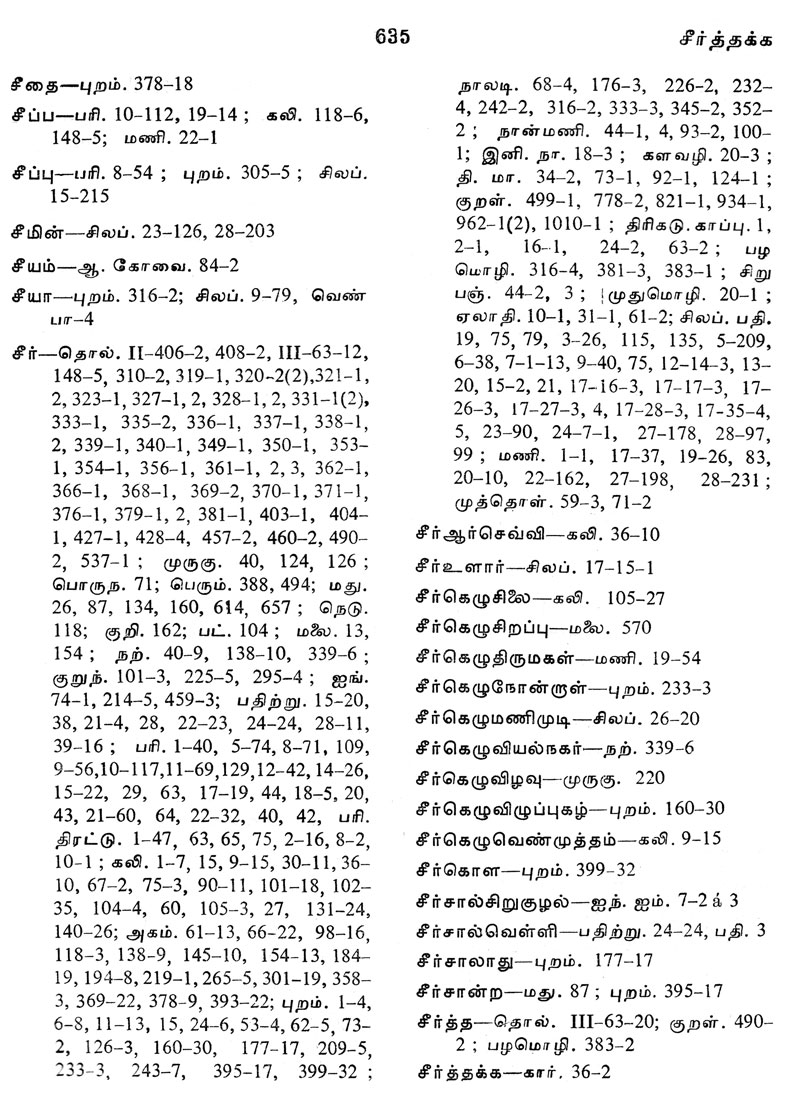 635
சீர்த்தக்க
சீதை—புறம். 378-18
சீப்ப—பரி. 10-112, 19-14 ; கலி. 118-6,
148-5; மணி. 22-1
சீப்பு—பரி. 8-54 ; புறம். 305-5 ; சிலப்.
15-215
சீமின்—சிலப். 23-126, 28-203
சீயம்—ஆ. கோவை. 84-2
சீயா—புறம். 316-2; சிலப். 9-79, வெண்
பா-4
சீர்—தொல். II-406-2, 408-2, III-63-12,
148-5, 310-2, 319-1, 320-2(2),321-1,
2, 323-1, 327-1, 2, 328-1, 2, 331-1(2),
333-1, 335-2, 336-1, 337-1, 338-1,
2, 339-1, 340-1, 349-1, 350-1, 353-
1, 354-1, 356-1, 361-1, 2, 3, 362-1,
366-1, 368-1, 369-2, 370-1, 371-1,
376-1, 379-1, 2, 381-1, 403-1, 404-
1, 427-1, 428-4, 457-2, 460-2, 490-
2, 537-1 ; முருகு. 40, 124, 126 ;
பொருந. 71; பெரும். 388, 494; மது.
26, 87, 134, 160, 614, 657 ; நெடு.
118; குறி. 162; பட். 104 ; மலை. 13,
154 ; நற். 40-9, 138-10, 339-6 ;
குறுந். 101-3, 225-5, 295-4 ; ஐங்.
74-1, 214-5, 459-3; பதிற்று. 15-20,
38, 21-4, 28, 22-23, 24-24, 28-11,
39-16 ; பரி. 1-40, 5-74, 8-71, 109,
9-56,10-117,11-69,129,12-42, 14-26,
15-22, 29, 63, 17-19, 44, 18-5, 20,
43, 21-60, 64, 22-32, 40, 42, பரி.
திரட்டு. 1-47, 63, 65, 75, 2-16, 8-2,
10-1 ; கலி. 1-7, 15, 9-15, 30-11, 36-
10, 67-2, 75-3, 90-11, 101-18, 102-
35, 104-4, 60, 105-3, 27, 131-24,
140-26; அகம். 61-13, 66-22, 98-16,
118-3, 138-9, 145-10, 154-13, 184-
19, 194-8, 219-1, 265-5, 301-19, 358-
3, 369-22, 378-9, 393-22; புறம். 1-4,
6-8, 11-13, 15, 24-6, 53-4, 62-5, 73-
2, 126-3, 160-30, 177-17, 209-5,
233-3, 243-7, 395-17, 399-32 ;
நாலடி. 68-4, 176-3, 226-2, 232-
4, 242-2, 316-2, 333-3, 345-2, 352-
2 ; நான்மணி. 44-1, 4, 93-2, 100-
1; இனி. நா. 18-3 ; களவழி. 20-3 ;
தி. மா. 34-2, 73-1, 92-1, 124-1 ;
குறள். 499-1, 778-2, 821-1, 934-1,
962-1(2), 1010-1 ; திரிகடு.காப்பு. 1,
2-1, 16-1, 24-2, 63-2 ; பழ
மொழி. 316-4, 381-3, 383-1 ; சிறு
பஞ். 44-2, 3 ; முதுமொழி. 20-1 ;
ஏலாதி. 10-1, 31-1, 61-2; சிலப். பதி.
19, 75, 79, 3-26, 115, 135, 5-209,
6-38, 7-1-13, 9-40, 75, 12-14-3, 13-
20, 15-2, 21, 17-16-3, 17-17-3, 17-
26-3, 17-27-3, 4, 17-28-3, 17-35-4,
5, 23-90, 24-7-1, 27-178, 28-97,
99 ; மணி. 1-1, 17-37, 19-26, 83,
20-10, 22-162, 27-198, 28-231 ;
முத்தொள். 59-3, 71-2
சீர்ஆர்செவ்வி—கலி. 36-10
சீர்உளார்—சிலப். 17-15-1
சீர்கெழுசிலை—கலி. 105-27
சீர்கெழுசிறப்பு—மலை. 570
சீர்கெழுதிருமகள்—மணி. 19-54
சீர்கெழுநோன்றாள்—புறம். 233-3
சீர்கெழுமணிமுடி—சிலப். 26-20
சீர்கெழுவியல்நகர்—நற். 339-6
சீர்கெழுவிழவு—முருகு. 220
சீர்கெழுவிழுப்புகழ்—புறம். 160-30
சீர்கெழுவெண்முத்தம்—கலி. 9-15
சீர்கொள—புறம். 399-32
சீர்சால்சிறுகுழல்—ஐந். ஐம். 7-2 á 3
சீர்சால்வெள்ளி—பதிற்று. 24-24, பதி. 3
சீர்சாலாது—புறம். 177-17
சீர்சான்ற—மது. 87 ; புறம். 395-17
சீர்த்த—தொல். III-63-20; குறள். 490-
2 ; பழமொழி. 383-2
சீர்த்தக்க—கார். 36-2